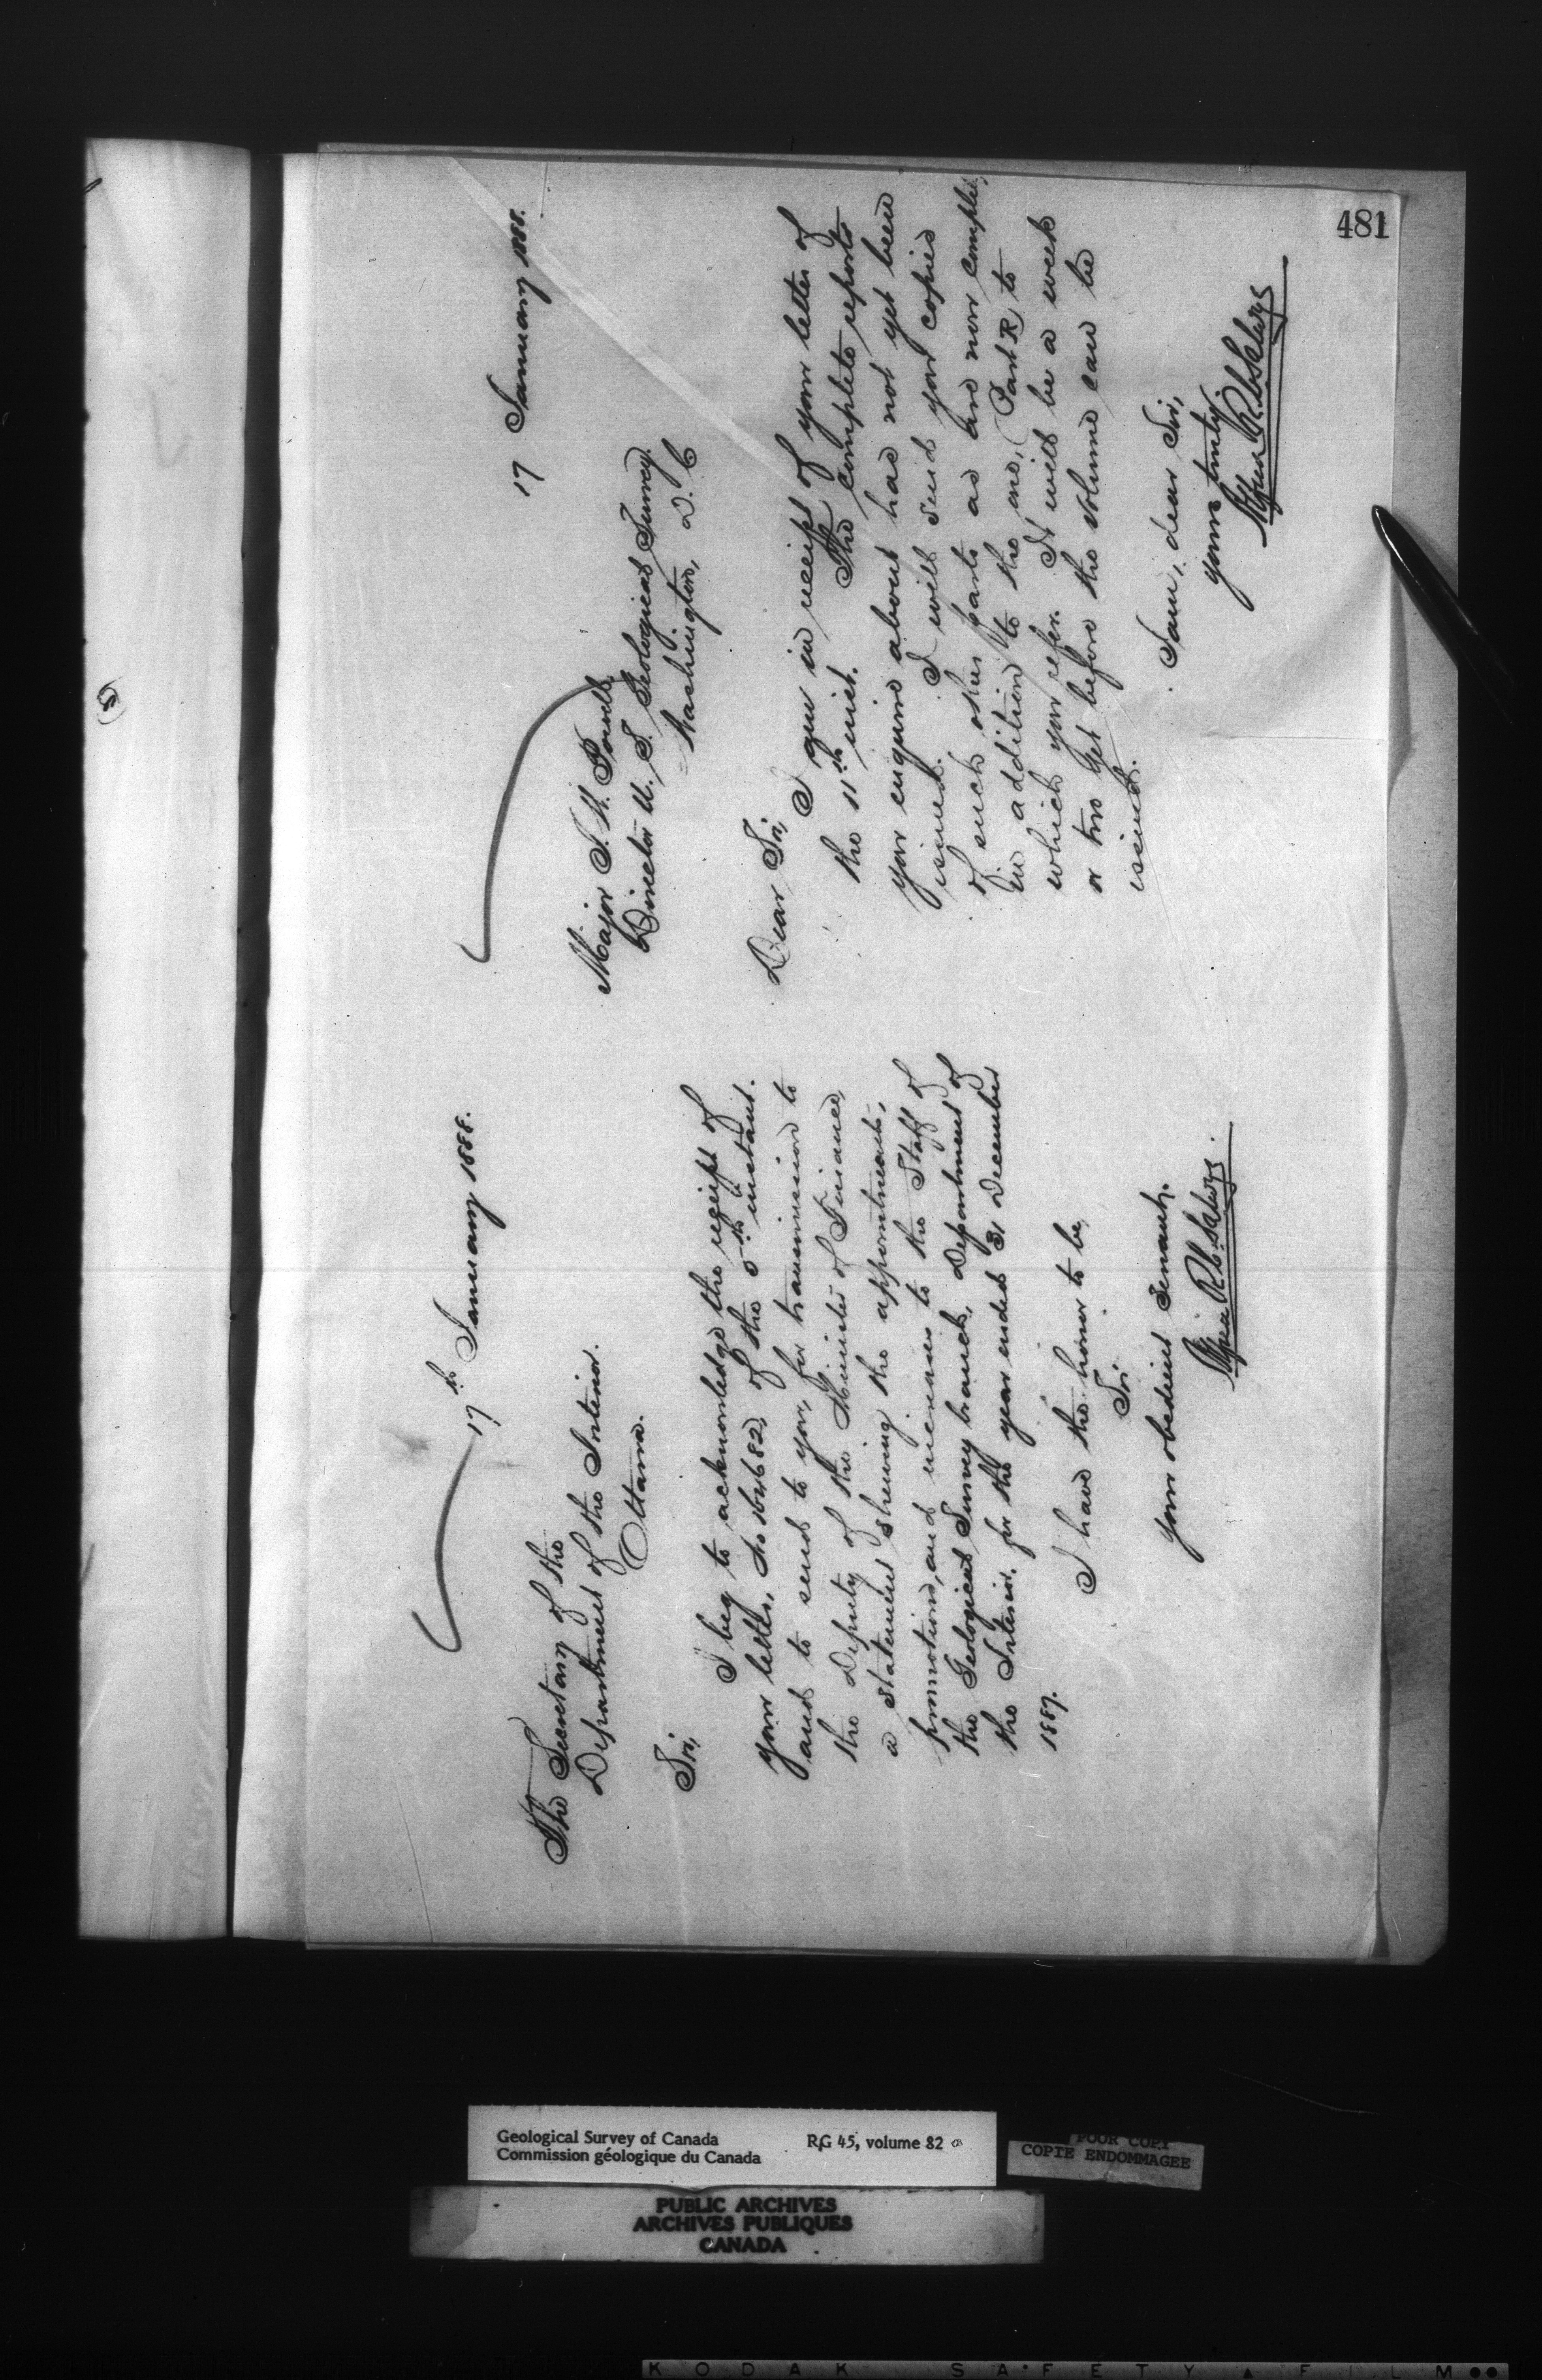 481
17th January 1888.
The Secretary of the
Department of the Interior.
Ottawa.
Sir,
I beg to acknowledge the receipt of
your letter, No 164682, of the 5th instant.
and to send to you, for transmission to
the Deputy of the Minister of Finance,
a statement shewing the appointments,
promotions, and increases to the Staff of
the Geological Survey branch, Department of
the Interior, for the year ended 31 December
1887.
I have the honor to be,
Sir
your obedient Servant,
17 January 1888.
Major J. W. Powell,
Director U. S. Geological Survey.
Washington, D. C
Dear Sir,
I am in receipt of your letter of
the 11th inst. The complete reports
you enquire about has not yet been
issued. I will send you copies
of such other parts as are now complete,
in addition to the one, (Part R) to
which you refer. It will be a week
or two yet before the volume can be
issued.
I am, dear Sir,
yours truly,
Geological Survey of Canada
Commission géologique du Canada
RG 45, volume 82
POOR COPY
COPIE ENDOMMAGEE
PUBLIC ARCHIVES
ARCHIVES PUBLIQUES
CANADA
KODAK SAFETY FILM